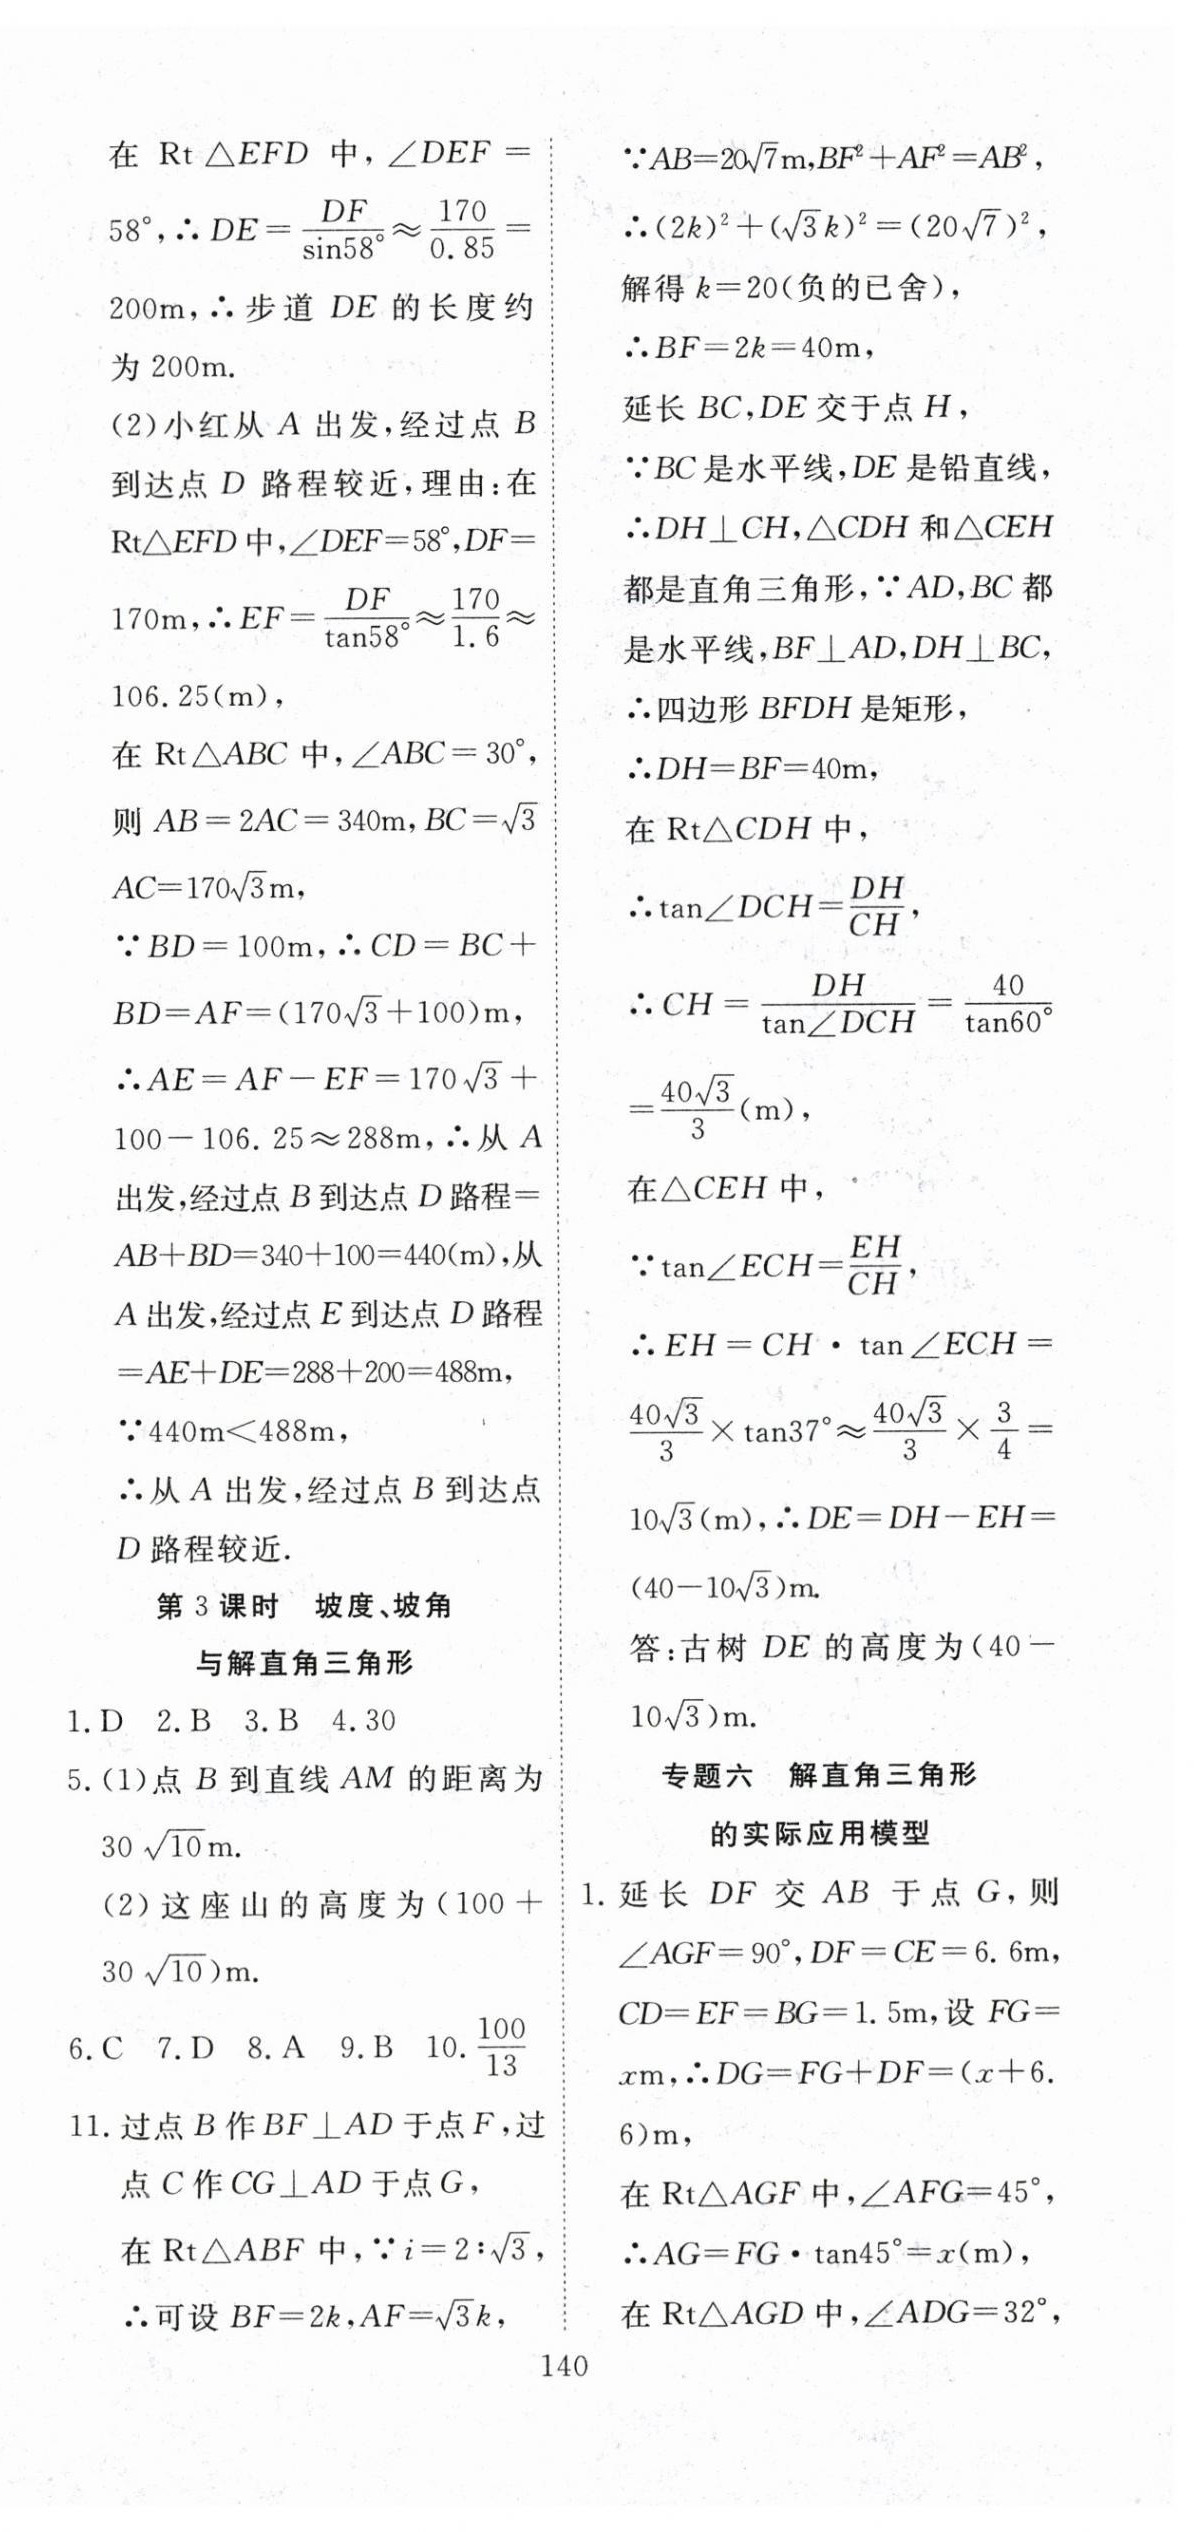 在 Rt △EFD 中, ∠DEF =
58°, ∴ DE = DF/sin58° ≈ 170/0.85 =
200m, ∴ 步道 DE 的长度约
为 200m.
(2)小红从 A 出发,经过点 B
到达点 D 路程较近,理由:在
Rt△EFD 中,∠DEF=58°,DF=
170m,∴EF=DF/tan58°≈170/1.6≈
106.25(m),
在 Rt△ABC 中,∠ABC=30°,
则 AB=2AC=340m,BC=√3
AC=170√3m,
∵BD=100m,∴CD=BC+
BD=AF=(170√3+100)m,
∴AE=AF-EF=170√3+
100-106.25≈288m,∴从 A
出发,经过点 B 到达点 D 路程=
AB+BD=340+100=440(m),从
A 出发,经过点 E 到达点 D 路程
=AE+DE=288+200=488m,
∵440m<488m,
∴从 A 出发,经过点 B 到达点
D 路程较近.
第 3 课时 坡度、坡角
与解直角三角形
1.D 2.B 3.B 4.30
5.(1)点 B 到直线 AM 的距离为
30√10m.
(2)这座山的高度为(100+
30√10)m.
6.C 7.D 8.A 9.B 10.100/13
11.过点 B 作 BF⊥AD 于点 F,过
点 C 作 CG⊥AD 于点 G,
在 Rt△ABF 中,∵i=2∶√3,
∴可设 BF=2k,AF=√3k,
∵AB=20√7m,BF²+AF²=AB²,
∴(2k)²+(√3k)²=(20√7)²,
解得 k=20(负的已舍),
∴BF=2k=40m,
延长 BC,DE 交于点 H,
∵BC 是水平线,DE 是铅直线,
∴DH⊥CH,△CDH 和△CEH
都是直角三角形,∵AD,BC 都
是水平线,BF⊥AD,DH⊥BC,
∴四边形 BFDH 是矩形,
∴DH=BF=40m,
在 Rt△CDH 中,
∴tan∠DCH=DH/CH,
∴CH=DH/tan∠DCH=40/tan60°
=40√3/3(m),
在△CEH 中,
∵tan∠ECH=EH/CH,
∴EH=CH·tan∠ECH=
40√3/3×tan37°≈40√3/3×3/4=
10√3(m),∴DE=DH-EH=
(40-10√3)m.
答:古树 DE 的高度为(40-
10√3)m.
专题六 解直角三角形
的实际应用模型
1.延长 DF 交 AB 于点 G,则
∠AGF=90°,DF=CE=6.6m,
CD=EF=BG=1.5m,设 FG=
xm,∴DG=FG+DF=(x+6.
6)m,
在 Rt△AGF 中,∠AFG=45°,
∴AG=FG·tan45°=x(m),
在 Rt△AGD 中,∠ADG=32°,
140